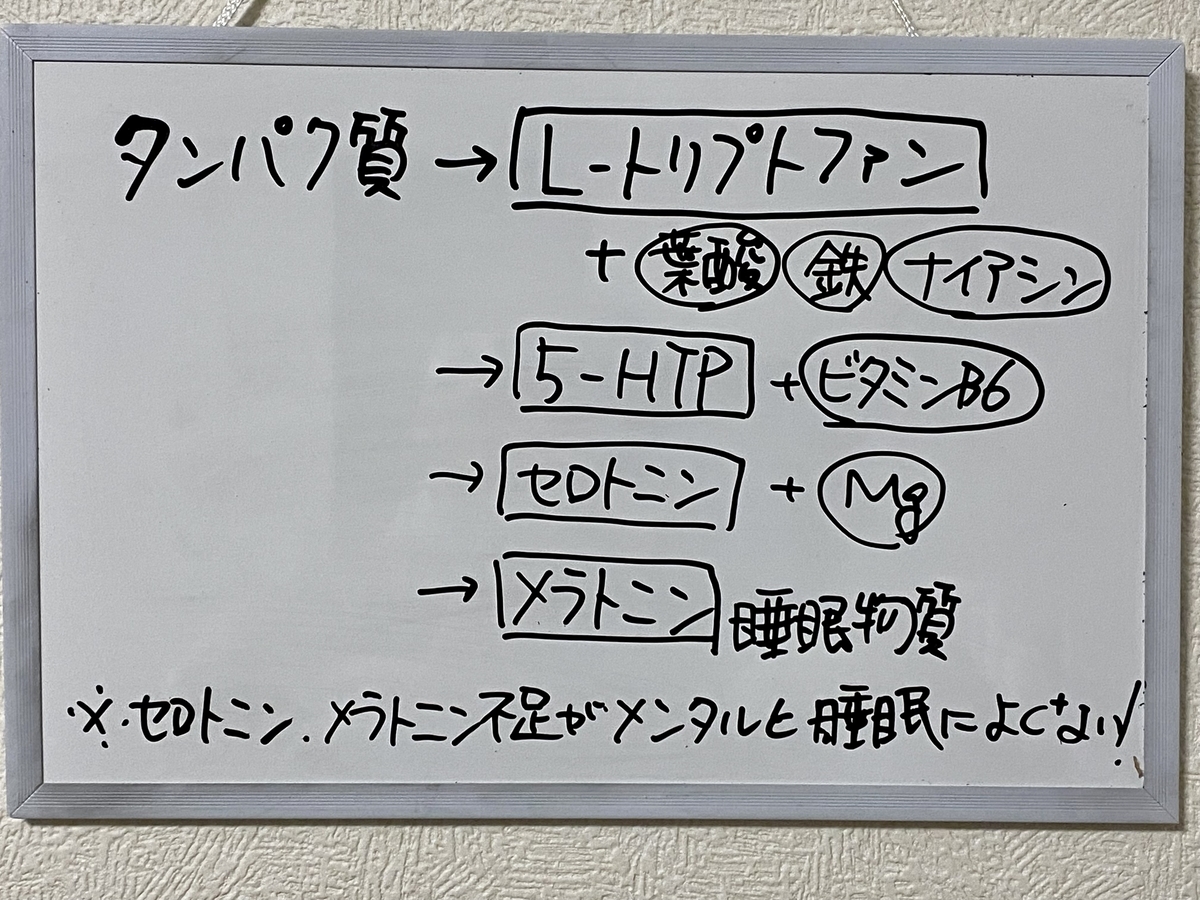 タンパク質 → L-トリプトファン
+ 葉酸 鉄 ナイアシン
→ 5-HTP + ビタミンB6
→ セロトニン + Mg
→ メラトニン 睡眠物質
※セロトニン、メラトニン不足がメンタルと睡眠によくない!